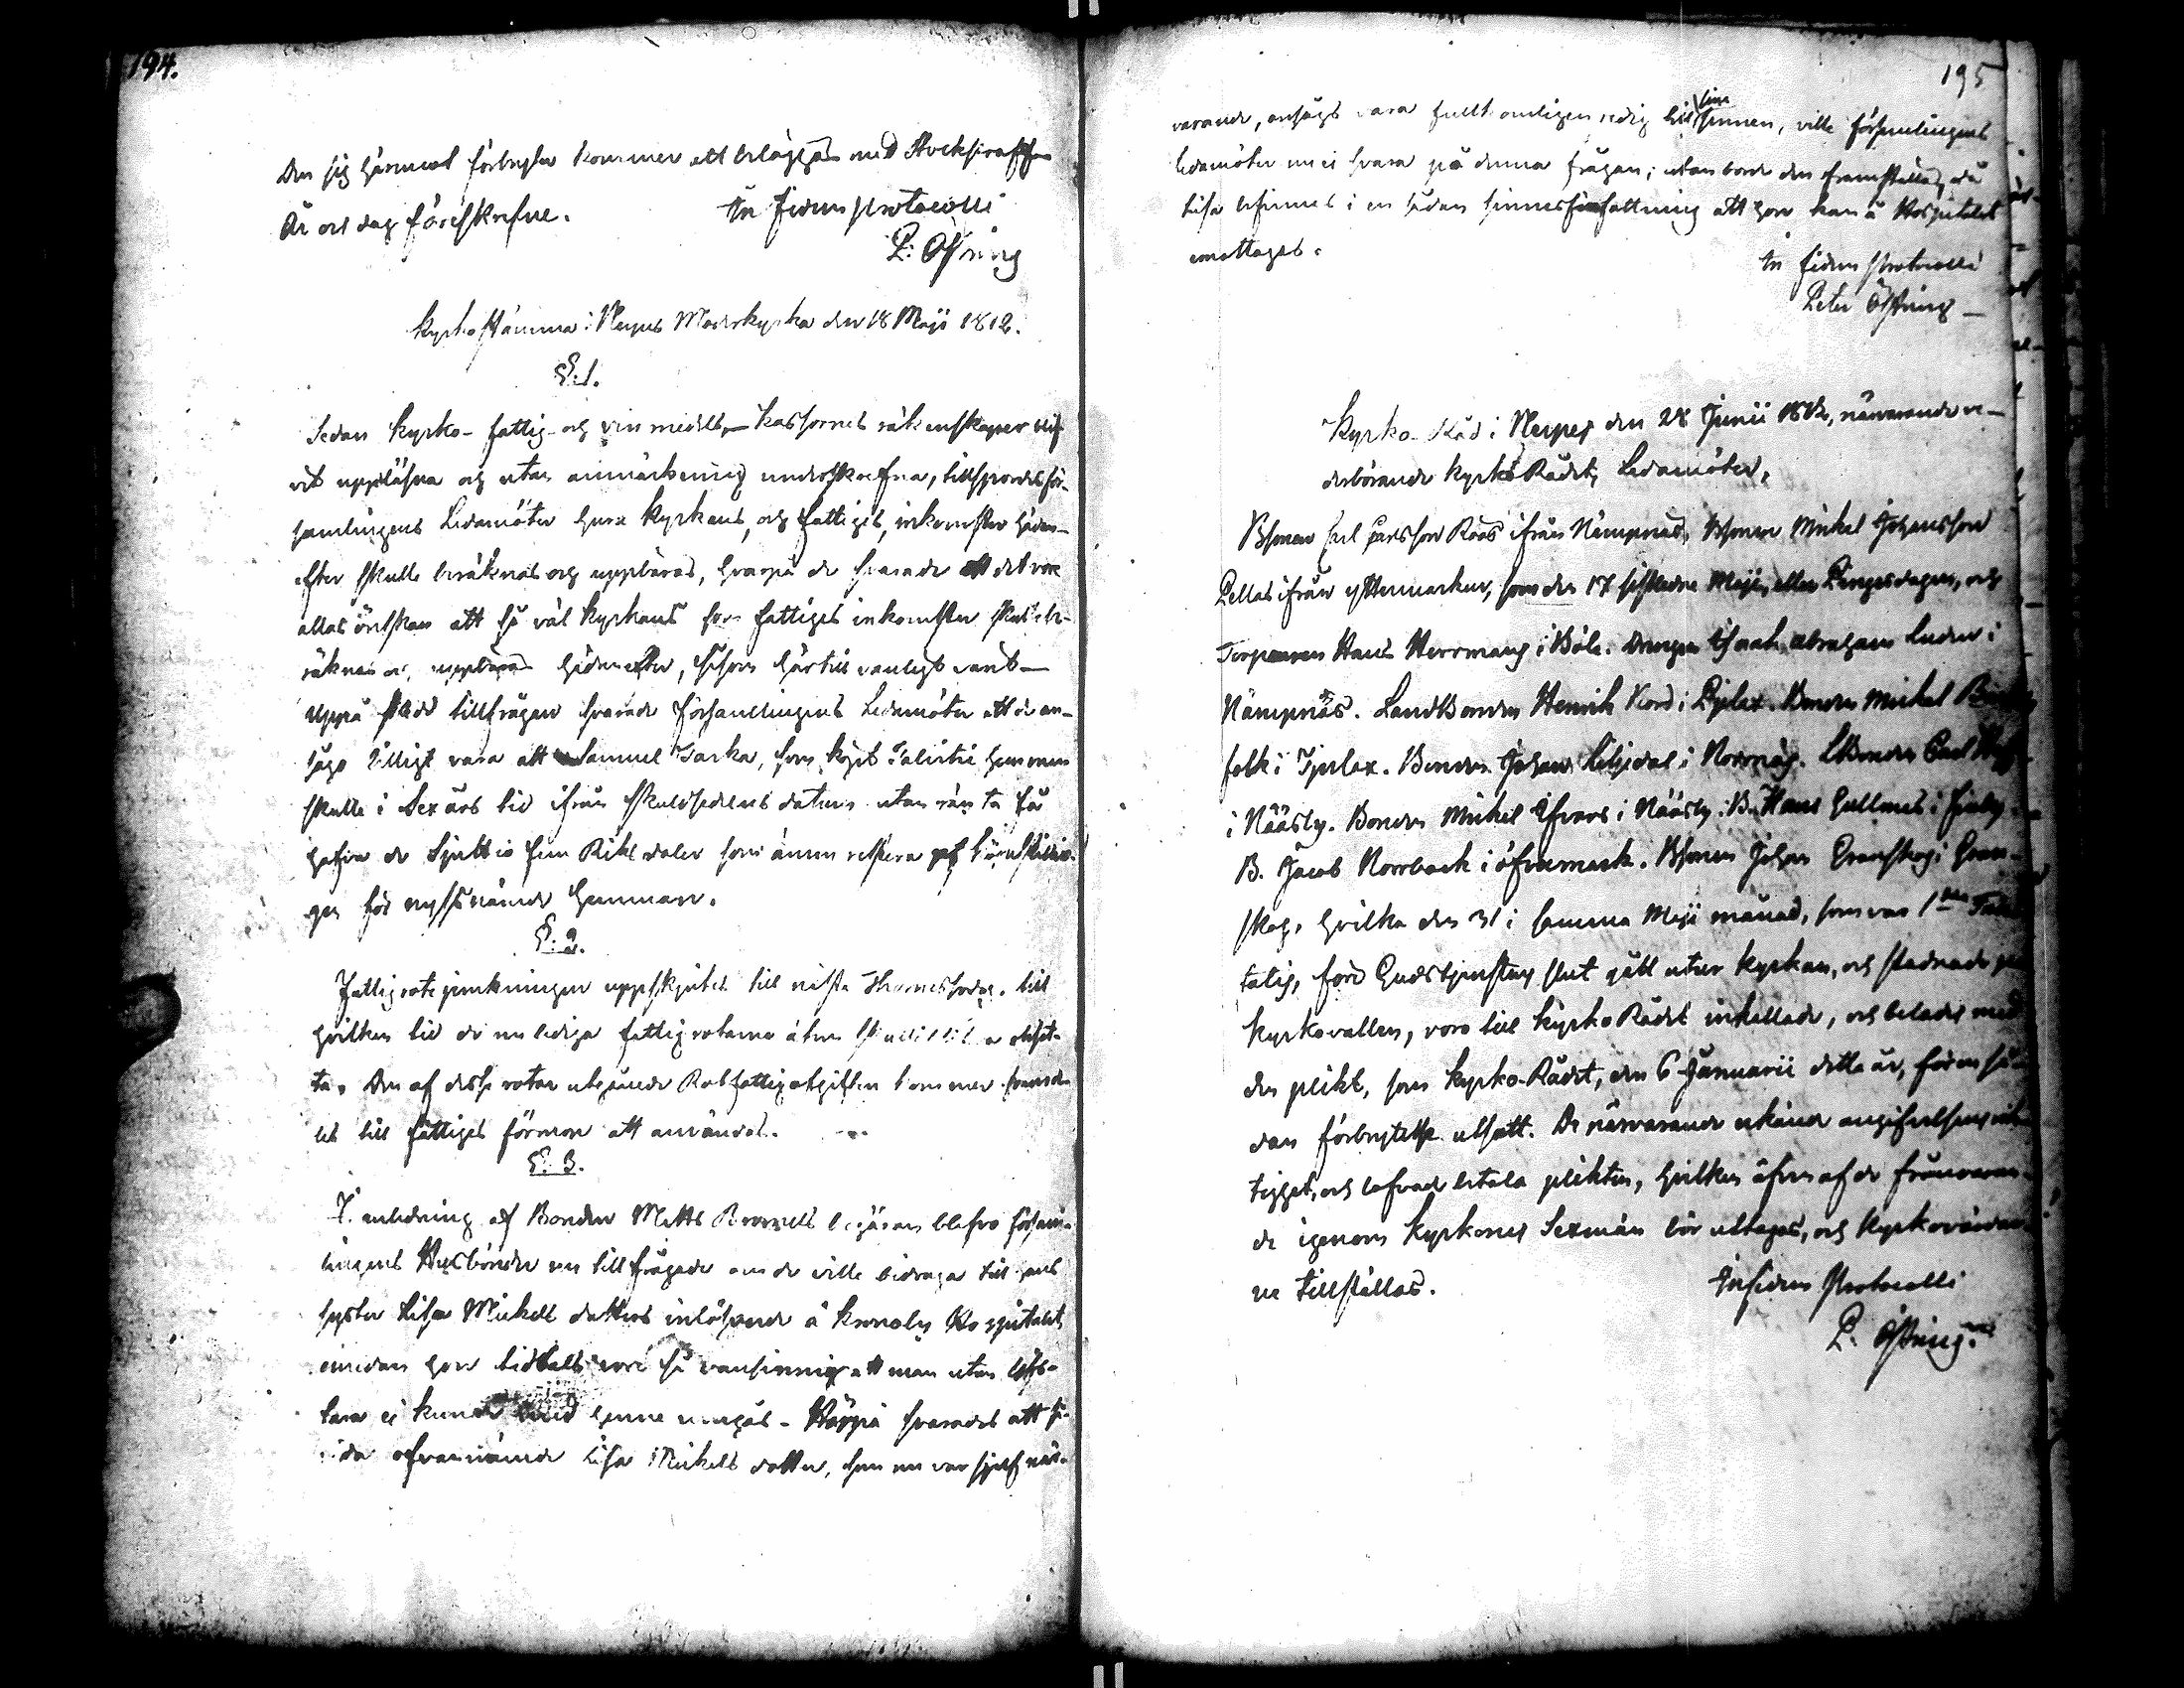 194.
den sig härmed förbryter kommer att beläggas med Stockstraffen
År och dag föreskrefne. In fidem Protocolli
P. Östring
Kyrkostämma i Nerpes Moderkyrka den 18 Maji 1812.
§. 1.
Sedan Kyrko- fattig- och vin medels kassornes räkenskaper blif-
vit uppläsna och utan anmärkning underskrefna, tillspordes för-
samlingens Ledamöter huru Kyrkans, och fattiges, inkomster häden-
efter skulle beräknas och uppbäras, hvarpå de svarade att det vore
allas önskan att så väl Kyrkans som fattiges inkomster skulle be-
räknas och uppbäras hädanefter, såsom härtill vanligt varit
Uppå skedd tillfrågan svarade Församlingens Ledamöter att de an-
sågo billigt vara att Samuel Taska, som köpt hemman
skulle i Sex års tid ifrån skuldsedelens datum utan ränta få
hafva de Sjuttio fem Riksdaler som ännu restera af
gen för nyssnämde hemman.
§. 2.
Fattigrote jemkningen uppskjutes till nästa Thomæsdag, till
hvilken tid de nu lediga fattigrotarne äfven obesat-
ta. Den af desse rotar utgående Rotfattigafgiften kommer framde-
les till fattiges förmon att användas.
§. 3.
I anledning af Bonden Matts begäran blefvo församl-
lingens Husbönder nu tillfrågade om de ville bidraga till hans
syster Lisa Mickels dotters inlösande å Kronoby Hospitalet,
emedan hon tidtals vore så vansinnig att man utan lifs-
fara ej kunde med henne umgås. Härpå svarades att så-
ofvannämde Lisa Mickels dotter, som nu var sjelf när-
195
varande, ansågs vara fullkomligen redig till sine sinnen, ville församlingens
ledamöter nu ej svara på denna frågan; utan borde den framställas, då
Lisa befinnes i en sådan sinnesförfattning att hon kan å Hospitalet
emottagas.
In fidem Protocolli
Peter Östring
Kyrko-Råd i Nerpes den 28 Junii 1812, närvarande ve-
derbörande Kyrko Rådets Ledamöter.
Bsonen Carl Carlsson Roos ifrån Nämpnäs, Bsonen Mickel Johansson
Pellas ifrån yttermarken, som den 17 sistledne Maji, eller Pingesdagen, och
Torparen Hans Herrmans i Böle. Drengen Isaak Abraham Luden i
Nämpnäs. LandBonden Henrik Nord i Pjelax. Bonden Mickel
folk i Tjerlax. Bonden Johan Liljedal i Norrnäs. LBonden Carl
i Nääsby. Bonden Mickel Ifvars i Nääsby. B. Hans Gullmes i Finby
B. Jacob Norrback i öfvermark. Bsonen Johan Granskog i Gran-
skog, hvilka den 31 i samma Maji månad, som var 1sta
talig, före Gudstjenstens slut gått utur kyrkan, och stadnade på
kyrkovallen, voro till Kyrko Rådet inkallade, och belades med
den plikt, som Kyrko-Rådet, den 6 Januarii detta år, för en så-
dan förbrytelse utsatt. De närvarande erkände angifvelsens rik-
tighet, och lofvade betala plikten, hvilken äfven af de frånvaran-
de igenom Kyrkones Sexmän bör uttagas, och Kyrkovärdar-
ne tillställas. In fidem Protocolli
P. Östring.